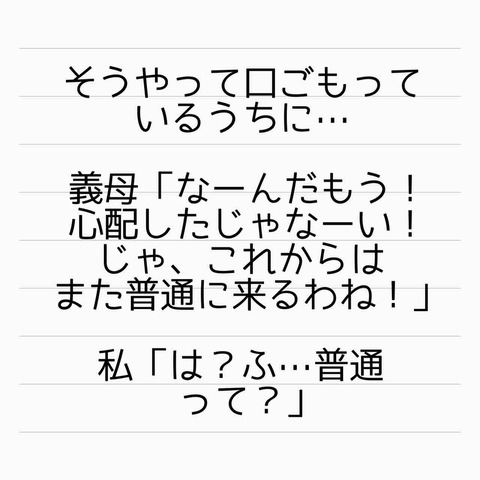 そうやって口ごもって
いるうちに…
義母「なーんだもう！
心配したじゃなーい！
じゃ、これからは
また普通に来るわね！」
私「は？ふ…普通
って？」